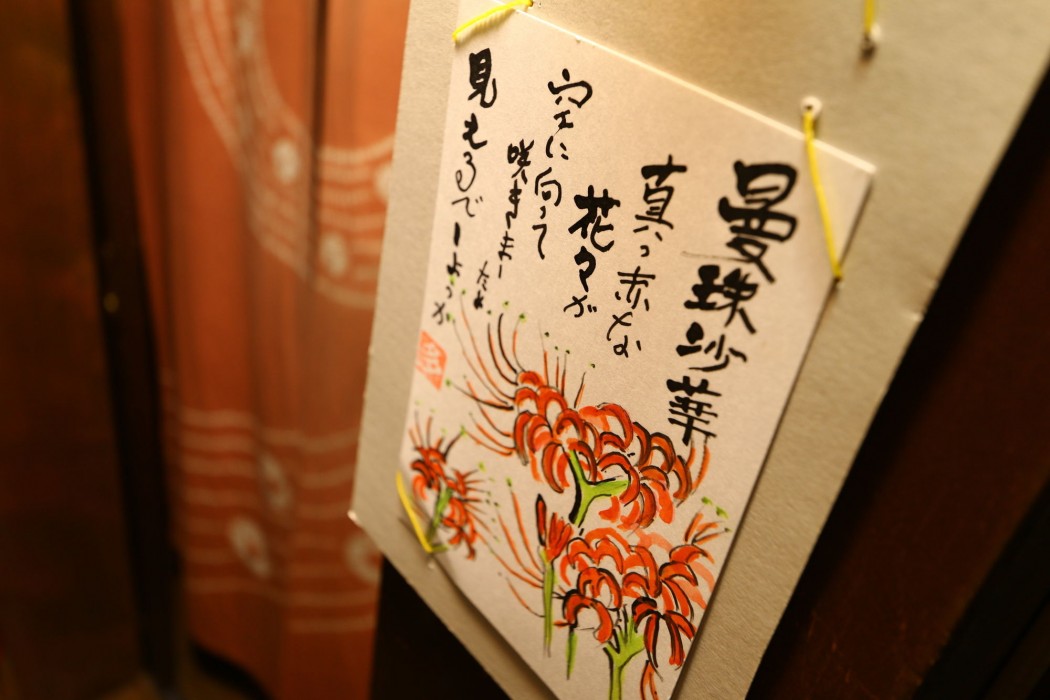 曼珠沙華
真っ赤な
花々が
空に向って
咲きました
見もるでしょうか